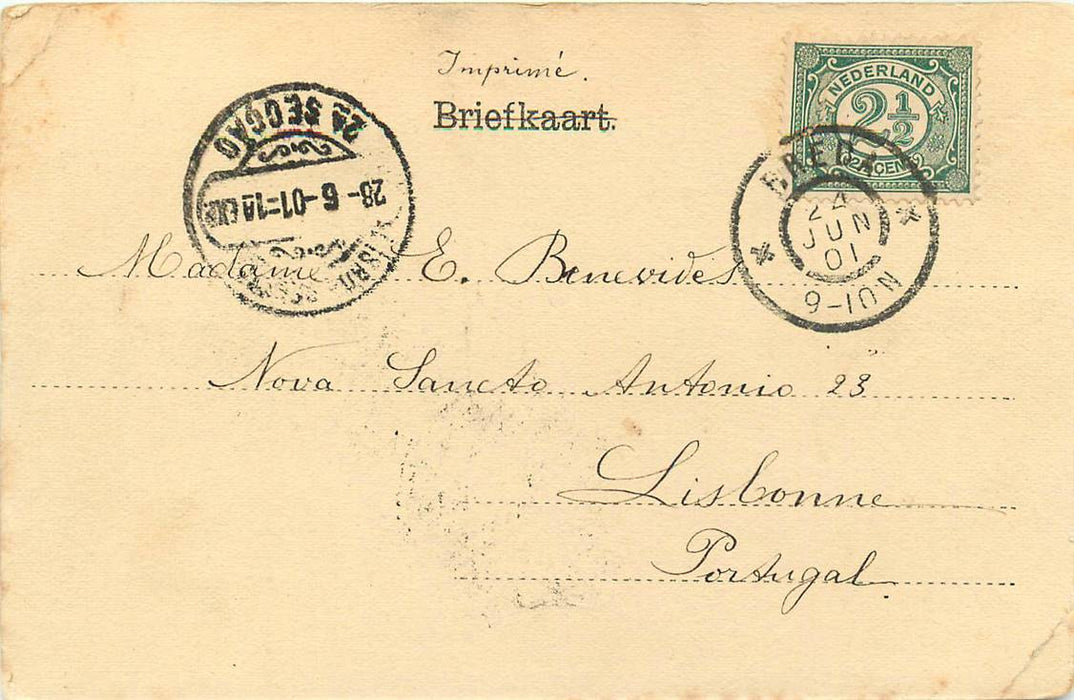 Imprimé.
Briefkaart.
NEDERLAND
2½
BREDA
24
JUN
01
9-10N
2A SECÇAO
28-6-01=1A
Madame E. Benevides
Nova Sancto Antonio 23
Lisbonne
Portugal